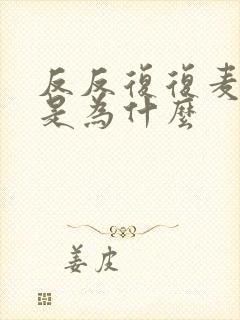 反反復復麦
是為什麼
姜皮